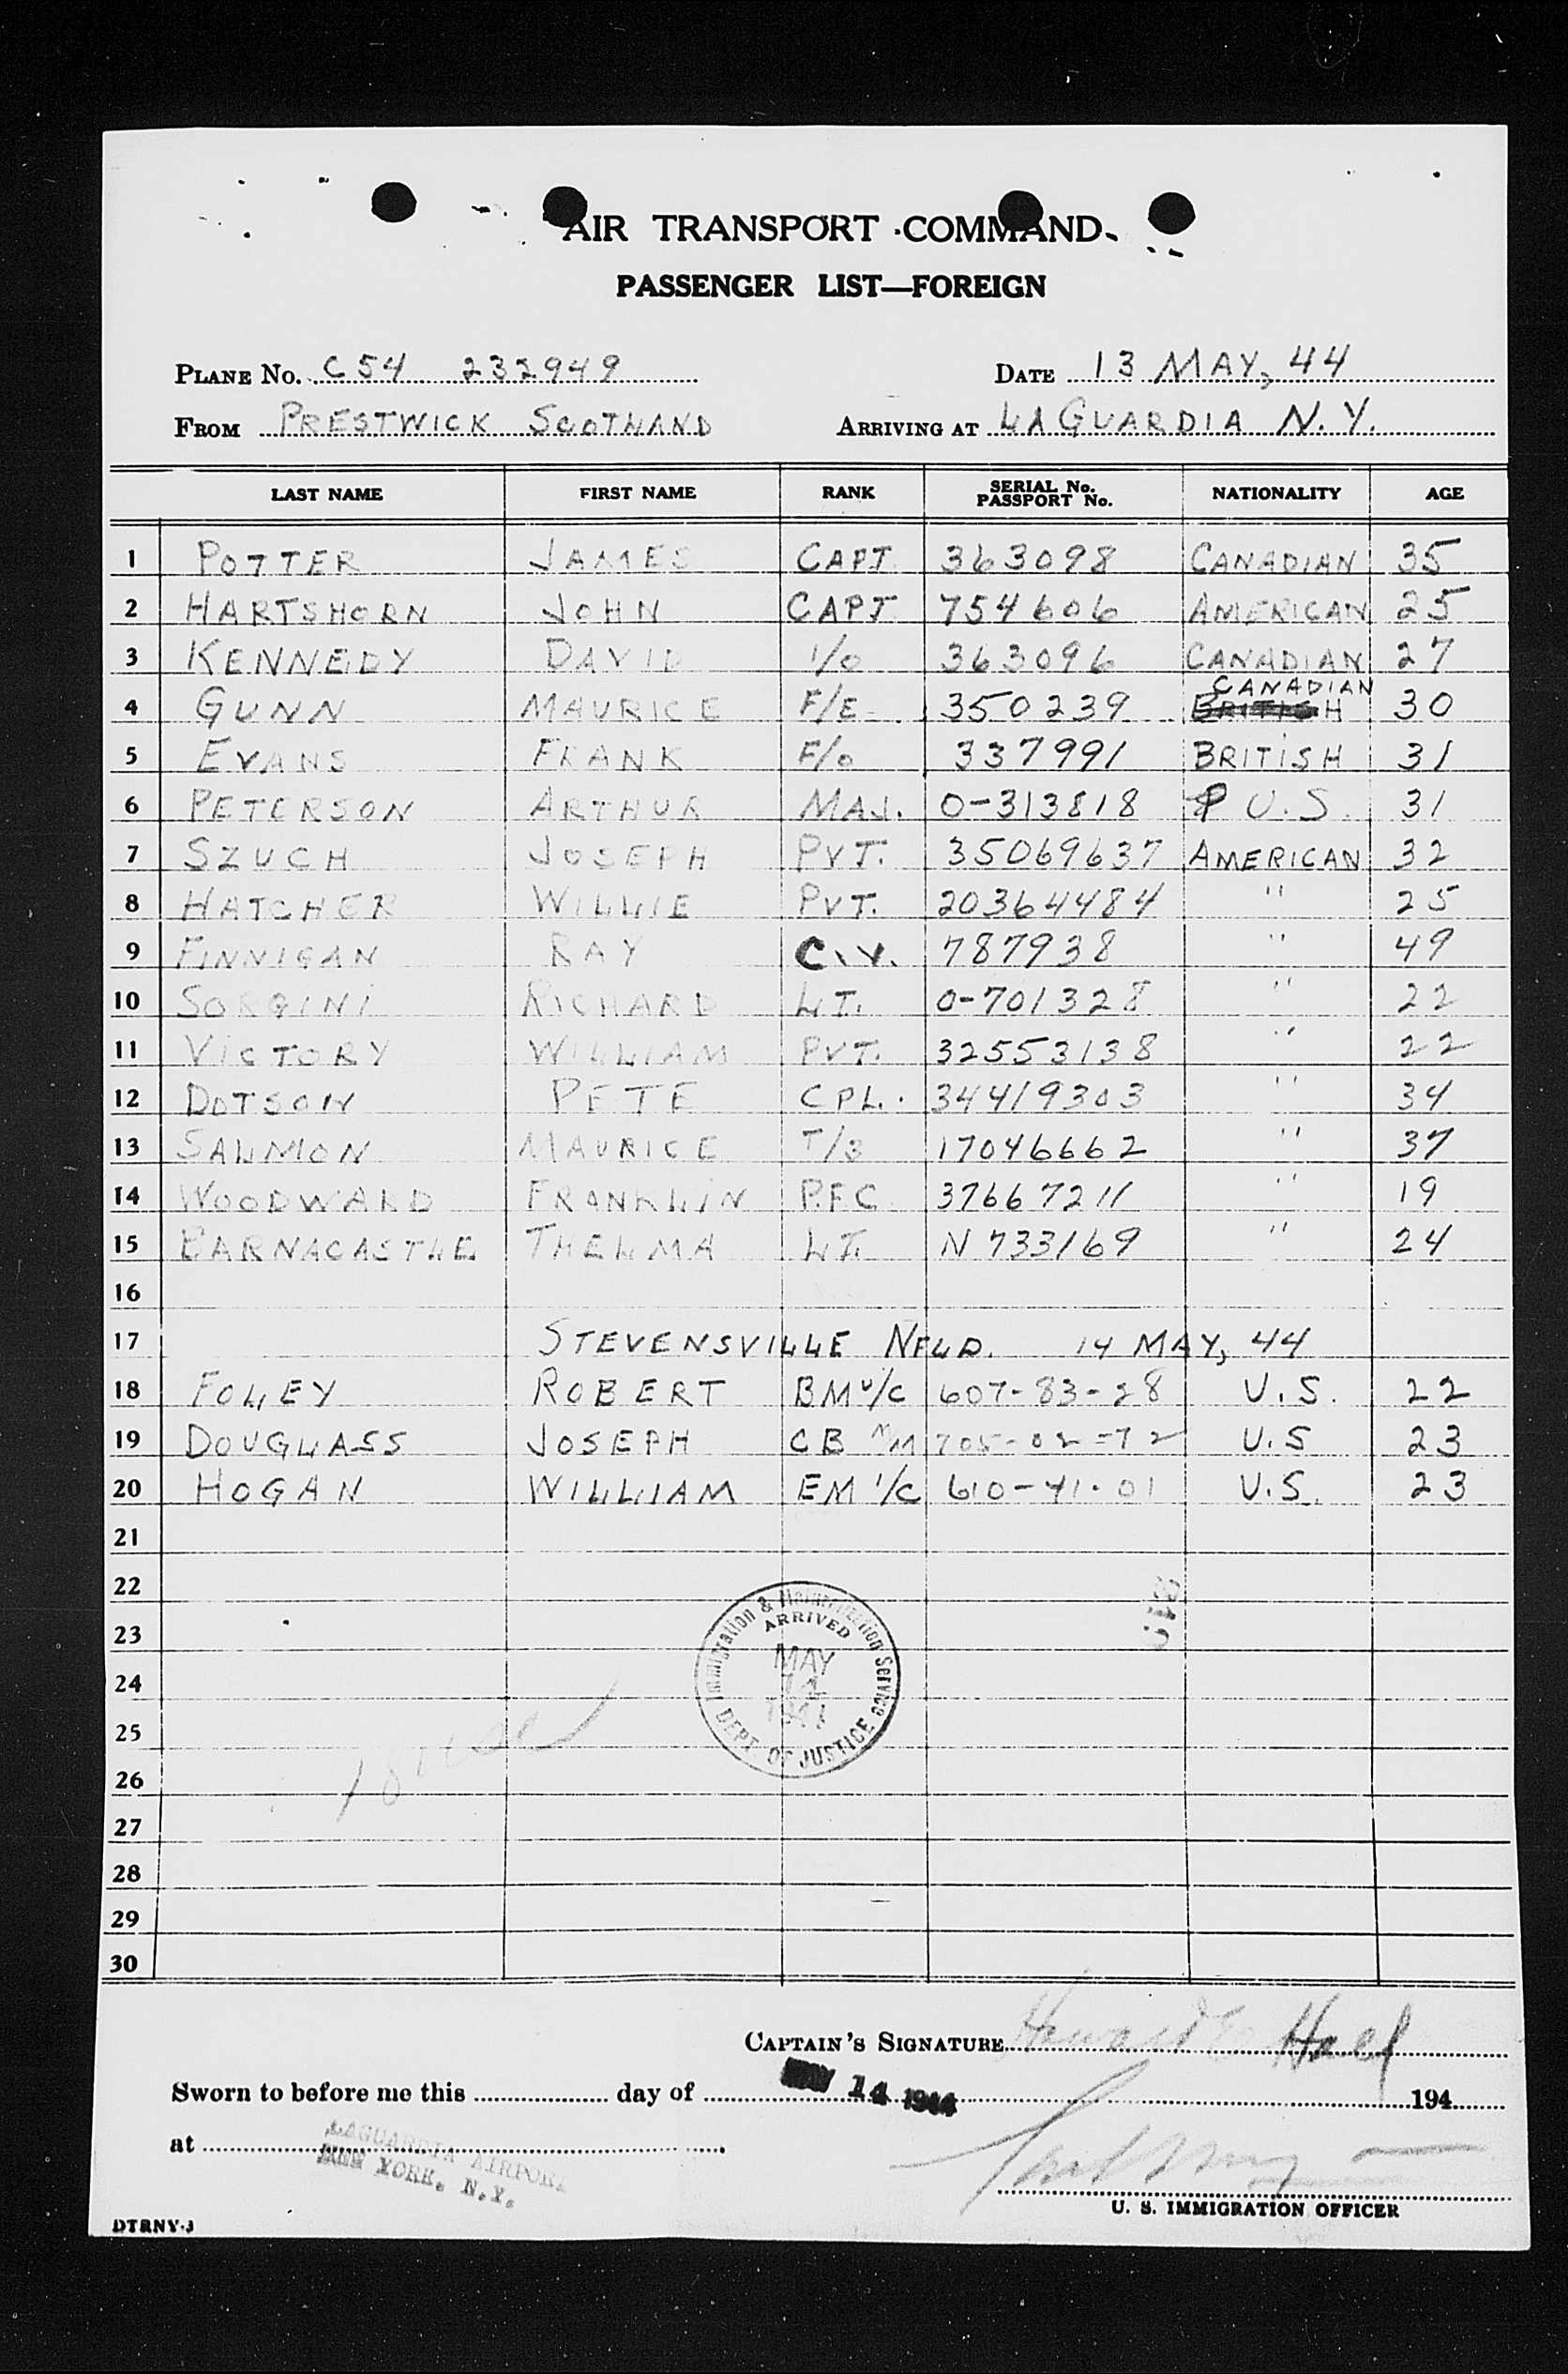 AIR TRANSPORT COMMAND
PASSENGER LIST—FOREIGN
PLANE NO. C54 232949 DATE 13 MAY, 44
FROM PRESTWICK SCOTLAND ARRIVING AT LAGUARDIA N.Y.
LAST NAME FIRST NAME RANK SERIAL No. PASSPORT No. NATIONALITY AGE
1 POTTER JAMES CAPT 363098 CANADIAN 35
2 HARTSHORN JOHN CAPT 754606 AMERICAN 25
3 KENNEDY DAVID 1/0 363096 CANADIAN 27
4 GUNN MAURICE F/E 350239 BRITISH CANADIAN 30
5 EVANS FRANK F/O 337991 BRITISH 31
6 PETERSON ARTHUR MAJ. 0-313818 U.S. 31
7 SZUCH JOSEPH PVT. 35069637 AMERICAN 32
8 HATCHER WILLIE PVT. 20364484 " 25
9 FINNIGAN RAY C.V. 787938 " 49
10 SORGINI RICHARD LT. 0-701328 " 22
11 VICTORY WILLIAM PVT. 32553138 " 22
12 DOTSON PETE CPL. 34419303 " 34
13 SALMON MAURICE T/3 17046662 " 37
14 WOODWARD FRANKLIN P.F.C. 37667211 " 19
15 BARNACASTLE THELMA LT. N 733169 " 24
16
17 STEVENSVILLE NFLD. 14 MAY, 44
18 FOLEY ROBERT BM 607-83-28 U.S. 22
19 DOUGLASS JOSEPH CB MM 705-02-72 U.S 23
20 HOGAN WILLIAM EM 1/C 610-41-01 U.S. 23
21
22
23
24
25
26
27
28
29
30
Immigration & Naturalization Service
ARRIVED
MAY
14
DEPT. OF JUSTICE
CAPTAIN'S SIGNATURE Howard E Hael
Sworn to before me this day of MAY 14 1944 194
at LAGUARDIA AIRPORT
NEW YORK, N.Y.
U. S. IMMIGRATION OFFICER
DTRNY-3